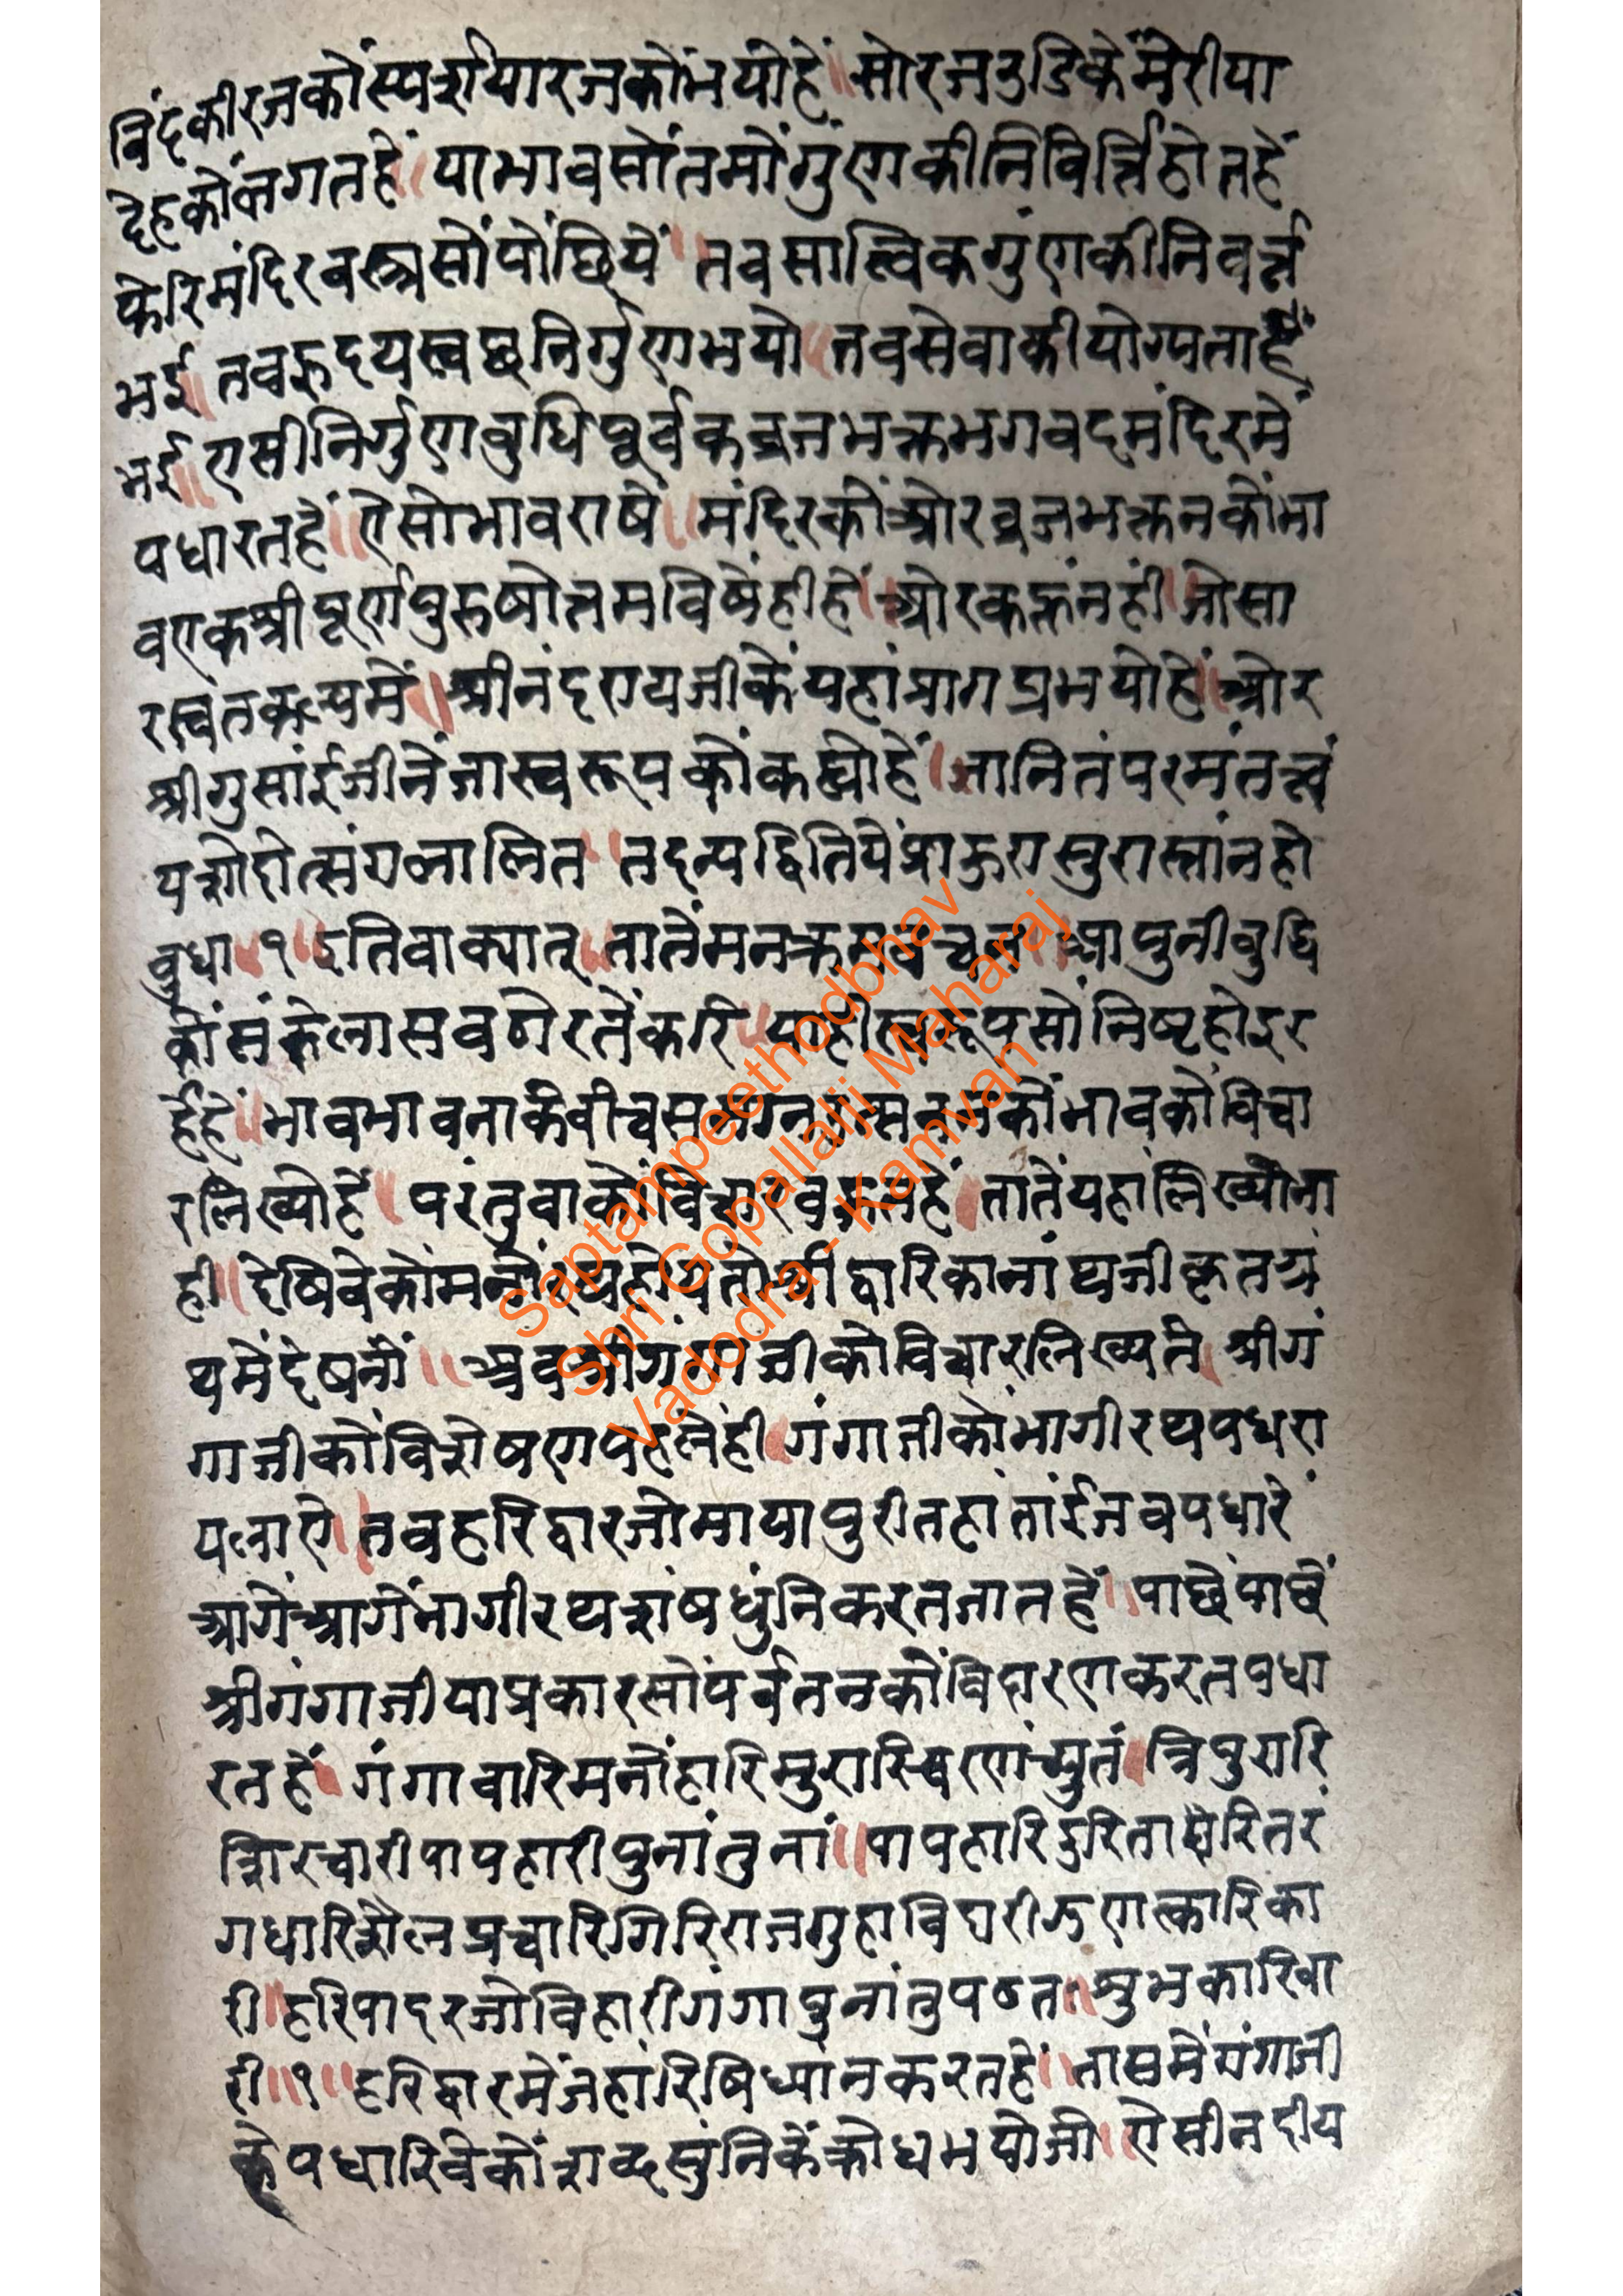 विंदकीरजकोंस्पर्शयारजकोंभयोहें॥सोरजउडिकेंमेरीया
देहकोंलगतहें॥याभावसोंतमोंगुंणकीनिविर्त्तिहोतहें
फेरिमंदिरवस्त्रसोंपोंछियें॥तवसात्विकगुंणकीनिवर्त्त
भई॥तवहृदयस्वछनिर्गुणभयो॥तवसेवाकीयोग्यताहें
भई॥एसीनिर्गुणवुधिपूर्वकव्रजभक्तभगवदमंदिरमें
पधारतहें॥ऐसोभावराषें॥मंदिरकींओरव्रजभक्तनकोंभा
वएकश्रीपूर्णपुरुषोत्तमविषेंहीहें॥ओरकहूंनहीं॥जोसा
रस्वतकल्पमें॥श्रीनंदरायजीकेंयहांप्रागप्रभयोहें॥ओर
श्रीगुसांईजीनेंजास्वरूपकोंकह्योहें॥जानितंपरमंतत्वं
यशोदोत्संगलालित॥तदन्यद्वितियेंप्राऊरासुरास्तांनहो
वुधा॥१॥इतिवाक्यात्॥तातेंमनक्रमवचन॥आपुनीवुद्धि
कोंसंकेलासवठोरतेंकरि॥याहीस्वरूपसोंनिष्टहोइर
हेंहें॥भावभावनाकेवीचस
रलिख्योहें॥परंतुवाकोंविचारवहूतहें॥तातेंयहांलिख्योना
ही॥देषिवेकोमनोरथहोयतोश्रीद्वारिकानांथजीकृतग्रं
थमेंदेषनों॥अवश्रीगंगाजीकोविचारलिख्यते॥श्रीगं
गाजीकोंविशेषणपहलेंही॥गंगाजीकोंभागीरथपधरा
यलाऐ॥तवहरिद्वारजोमायापुरीतहांतांईजवपधारें
आगेंआगेंभागीरथशंषधुंनिकरतजातहें॥पाछेंपाछें
श्रीगंगाजीयाप्रकारसोंपर्वतनकोंविदारणकरतपधा
रतहें॥गंगावारिमनोंहारिमुरारिचरणंच्युतं॥त्रिपुरारि
शिरचारीपापहारीपुनांतुनां॥पापहारिदुरितारितरं
गधारिशैलप्रचारिगिरिराजगुहाविदारीऊणत्कारिका
री॥हरिपादरजोविहारीगंगापुनांतुपठत॥शुभकारिवा
री॥१॥हरिद्वारमेंजहांरिषिध्यांनकरतहें॥तासमेंगंगाजी
केपधारिवेकोंशव्दसुंनिकेंक्रोधभयोजो॥ऐसीनदीय
Saptampeethodbhav
Shri Gopallalji Maharaj
Vadodra - Kamvan